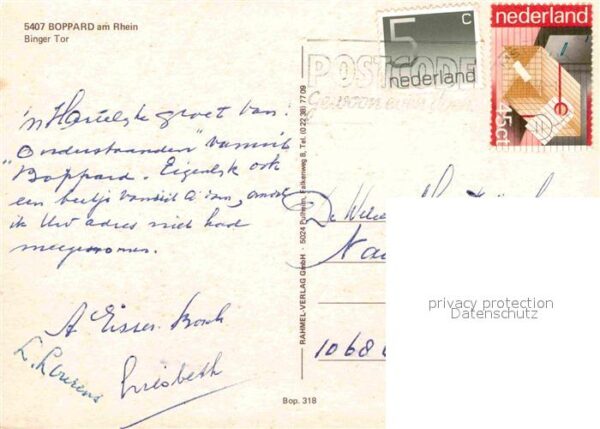 5407 BOPPARD am Rhein
Binger Tor
5 c
nederland
nederland
45ct
POSTCODE
gewoon even doen
'n Hartelijke groet van
"Onderstaanden" vanuit
Boppard. Eigenlijk ook
een beetje vanuit A'dam, omdat
ik Uw adres niet had
meegenomen.
A Eisser-Bosch
L. Lourens
Liesbeth
De
Na
1068
RAHMEL-VERLAG GmbH · 5024 Pulheim, Falkenweg 8, Tel. (0 22 38) 77 09
Bop. 318
privacy protection
Datenschutz